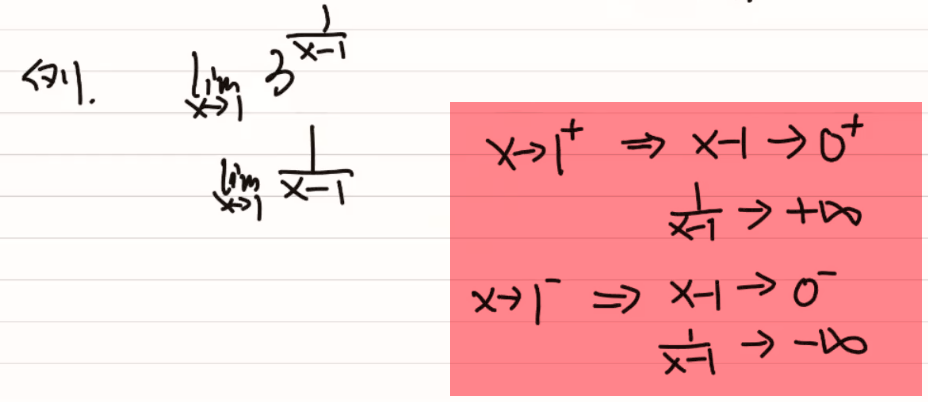 例1. lim_{x→1} 3^{\frac{1}{x-1}}
lim_{x→1} \frac{1}{x-1}
x→1⁺ ⇒ x-1 → 0⁺
\frac{1}{x-1} → +∞
x→1⁻ ⇒ x-1 → 0⁻
\frac{1}{x-1} → -∞